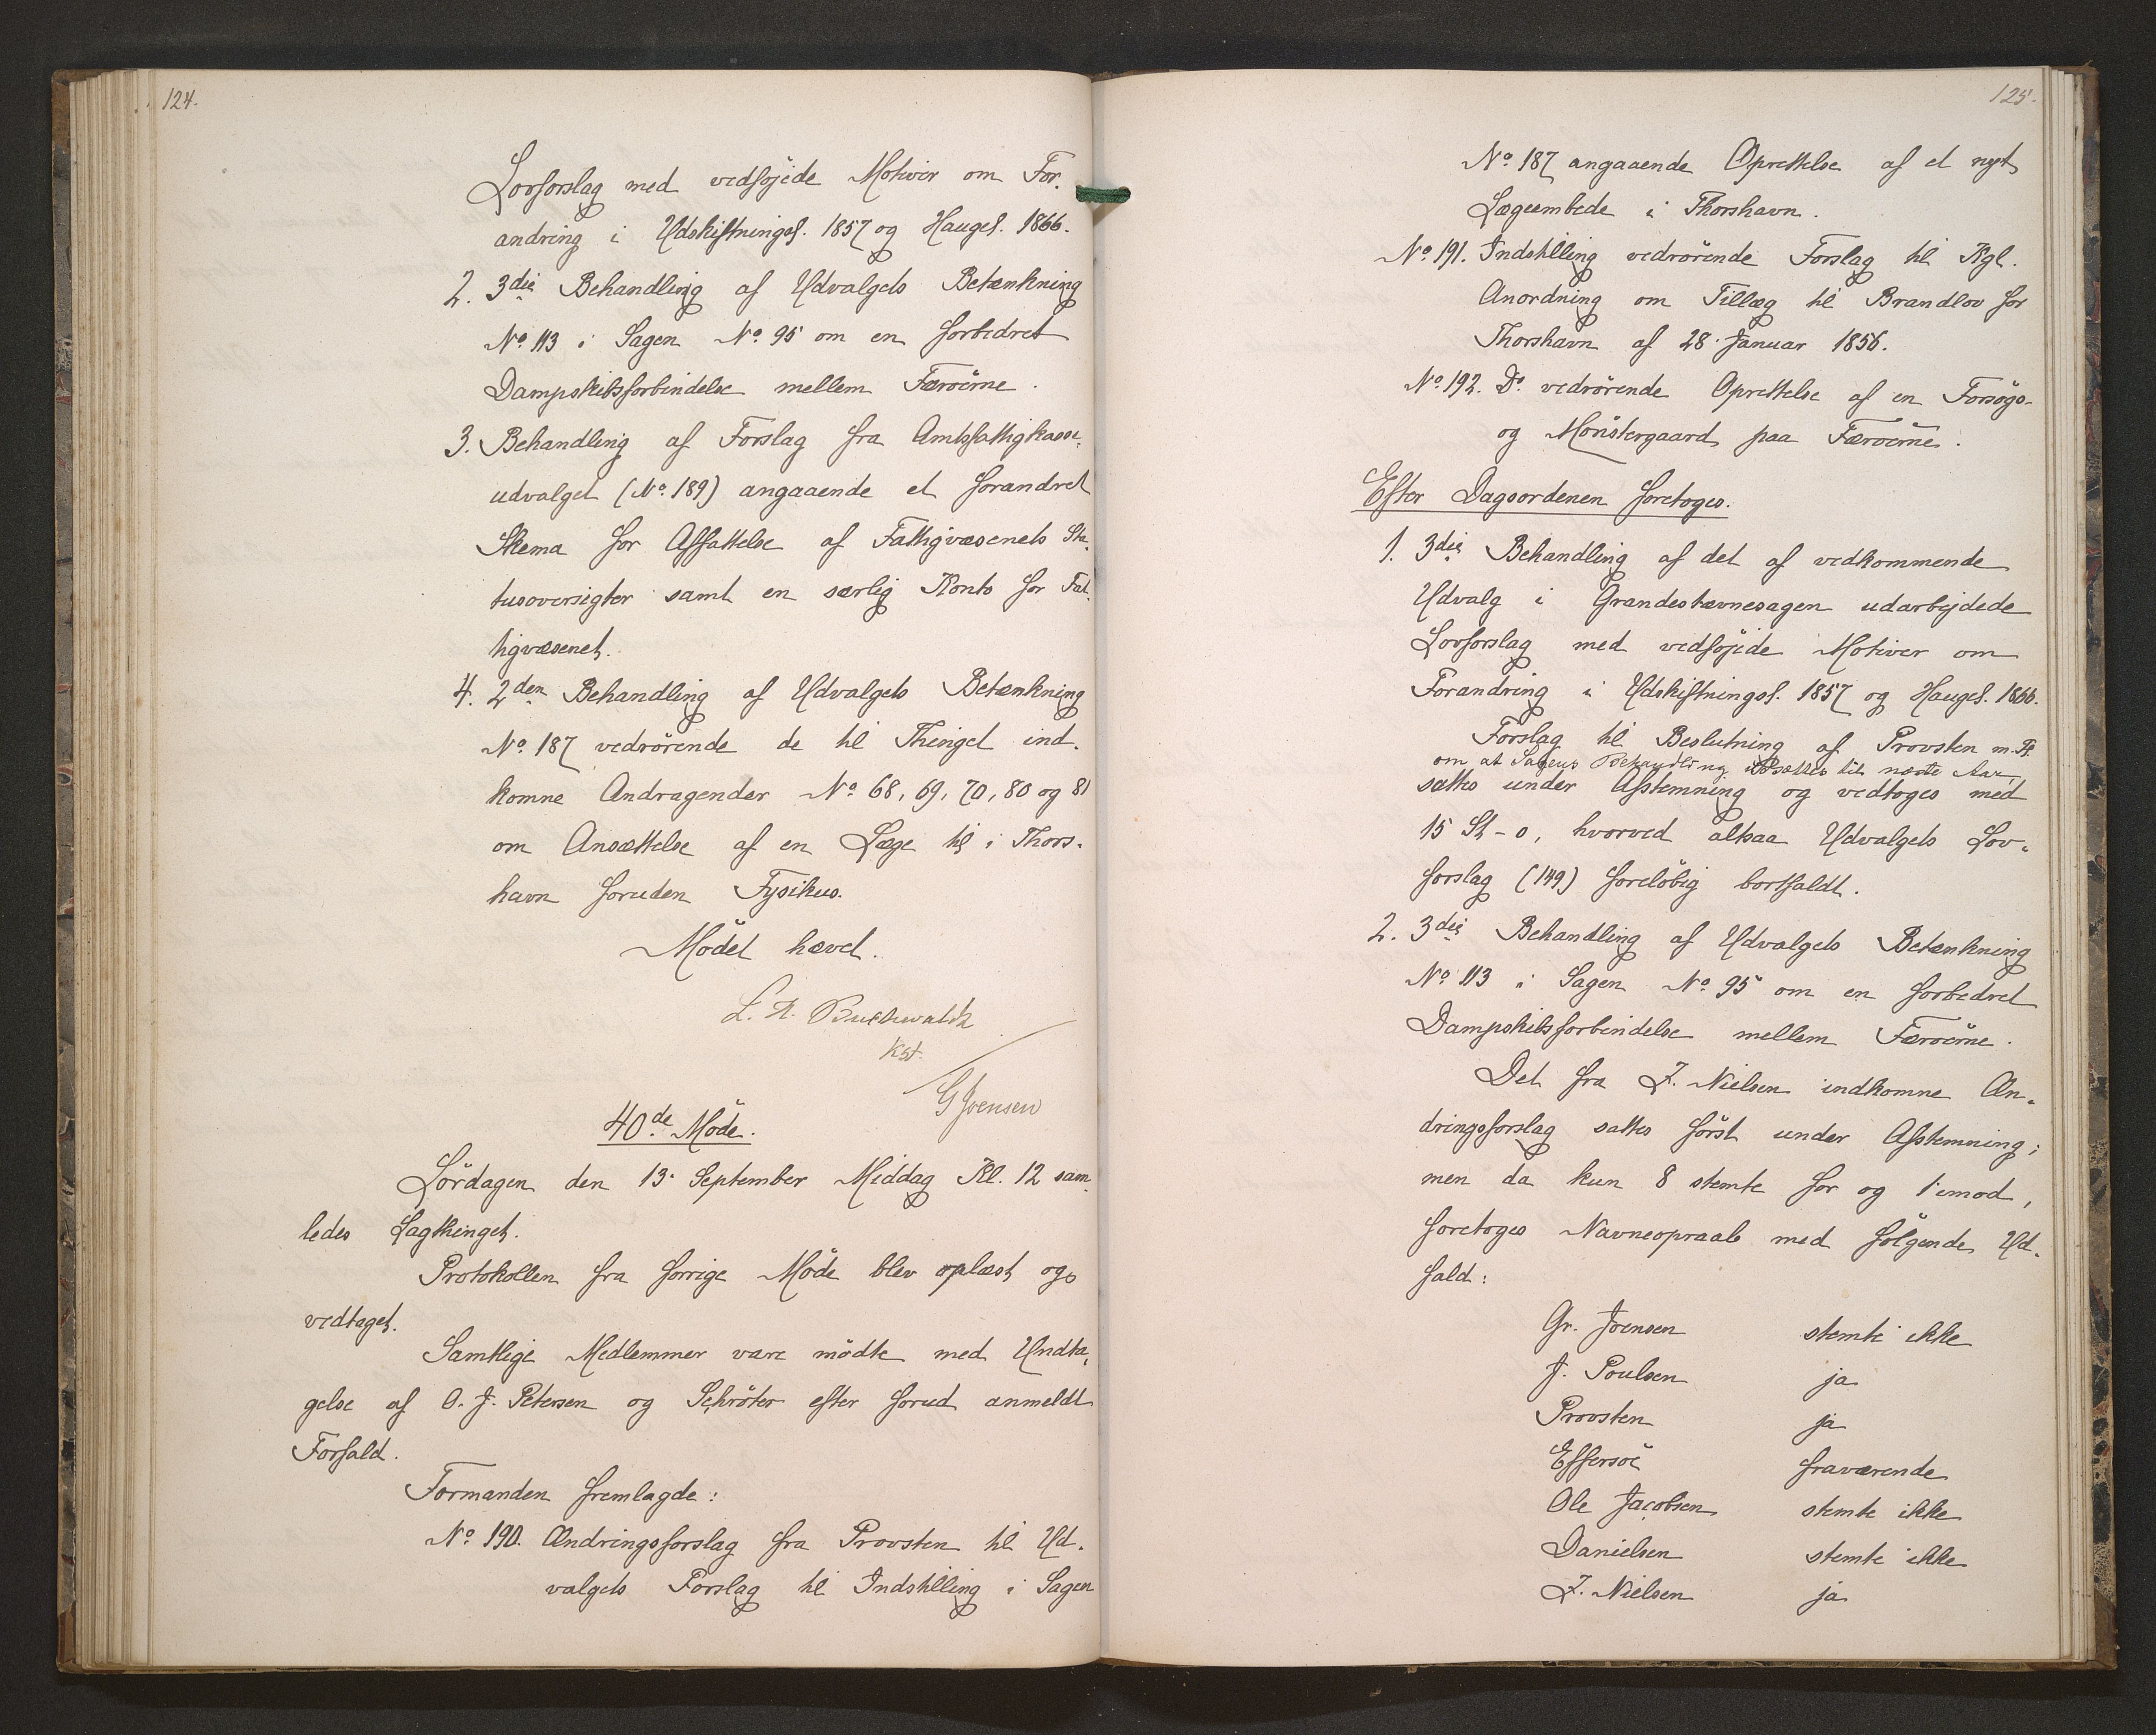 124.
Lovforslag med vedföjede Motiver om For-
andring i Udskiftningsf. 1857 og Hauges. 1866.
2. 3die Behandling af Udvalgets Betænkning
No 113 i Sagen No 95 om en forbedret
Dampskibsforbindelse mellem Færöerne.
3. Behandling af Forslag fra Amtsfattigkasse-
udvalget (No 189) angaaende et forandret
Skema for Affattelse af Fattigvæsenets Sta-
tusoversigter samt en særlig Konto for Fat-
tigvæsenet.
4. 2den Behandling af Udvalgets Betænkning
No 187 vedrörende de til Thinget ind-
komne Andragender No 68, 69, 70, 80 og 81
om Ansættelse af en Læge til i Thors-
havn foruden Fysikus.
Mödet hævet.
Buchwaldt
Kst.
G Joensen
40de Möde.
Lördagen den 13. September Middag Kl. 12 sam-
ledes Lagthinget.
Protokollen fra forrige Möde blev oplæst og
vedtaget.
Samtlige Medlemmer vare mödte med Undta-
gelse af O. J. Petersen og Schröter efter forud anmeldt
Forfald.
Formanden fremlagde:
No 190. Ændringsforslag fra Provsten til Ud-
valgets Forslag til Indstilling i Sagen
125.
No 187 angaaende Oprettelse af et nyt
Lægeembede i Thorshavn.
No 191. Indstilling vedrörende Forslag til Kgl.
Anordning om Tillæg til Brandlov for
Thorshavn af 28. Januar 1856.
No 192. Do vedrörende Oprettelse af en Forsögs-
og Mönstergaard paa Færöerne.
Efter Dagsordenen foretoges.
1. 3die Behandling af det af vedkommende
Udvalg i Grandestævnesagen udarbejdede
Lovforslag med vedföjede Motiver om
Forandring i Udskiftningsf. 1857 og Hauges. 1866.
Forslag til Beslutning af Provsten m. Fl.
om at Sagens Behandling udsættes til næste Aar,
sattes under Afstemning og vedtoges med
15 St - 0, hvorved altsaa Udvalgets Lov-
forslag (149) foreløbig bortfaldt.
2. 3die Behandling af Udvalgets Betænkning
No 113 i Sagen No 95 om en forbedret
Dampskibsforbindelse mellem Færöerne.
Det fra Z. Nielsen indkomne Æn-
dringsforslag sattes först under Afstemning;
men da kun 8 stemte for og 1 imod,
foretoges Navneopraab med fölgende Ud-
fald:
Gr. Joensen stemte ikke
J. Poulsen ja
Provsten ja
Effersöe fraværende
Ole Jacobsen stemte ikke
Danielsen stemte ikke
Z. Nielsen ja